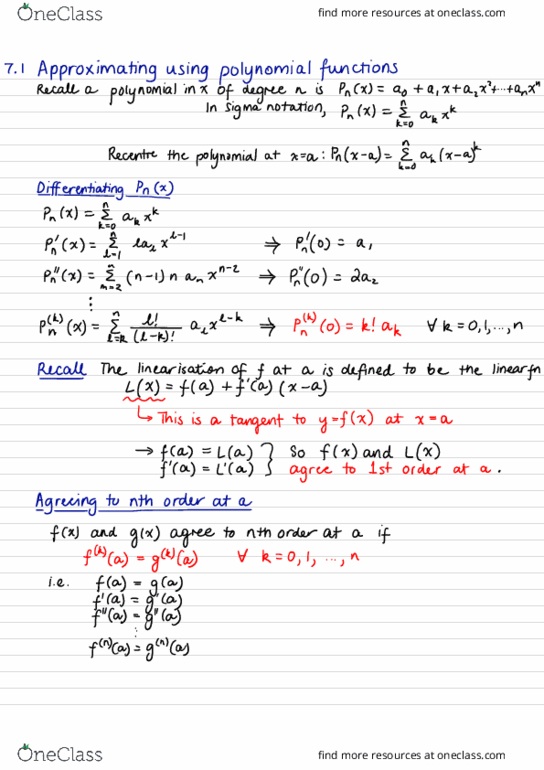 OneClass find more resources at oneclass.com
7.1 Approximating using polynomial functions
Recall a polynomial in x of degree n is Pₙ(x) = a₀ + a₁x + a₂x² + ... + aₙxⁿ
In sigma notation, Pₙ(x) = Σₖ₌₀ⁿ aₖxᵏ
Recentre the polynomial at x=a : Pₙ(x-a) = Σₖ₌₀ⁿ aₖ(x-a)ᵏ
Differentiating Pₙ(x)
Pₙ(x) = Σₖ₌₀ⁿ aₖxᵏ
Pₙ'(x) = Σ_{l=1}^{n} l a_l x^{l-1} ⇒ Pₙ'(0) = a₁
Pₙ''(x) = Σ_{m=2}^{n} (n-1) n aₙ x^{n-2} ⇒ Pₙ''(0) = 2a₂
⋮
Pₙ^{(k)}(x) = Σ_{l=k}^{n} l!/(l-k)! a_l x^{l-k} ⇒ Pₙ^{(k)}(0) = k! aₖ ∀ k = 0,1,...,n
Recall The linearisation of f at a is defined to be the linear fn
L(x) = f(a) + f'(a)(x-a)
↳ This is a tangent to y=f(x) at x=a
→ f(a) = L(a) } So f(x) and L(x)
f'(a) = L'(a) } agree to 1st order at a.
Agreeing to nth order at a
f(x) and g(x) agree to nth order at a if
f^{(k)}(a) = g^{(k)}(a) ∀ k = 0, 1, ..., n
i.e. f(a) = g(a)
f'(a) = g'(a)
f''(a) = g''(a)
⋮
f^{(n)}(a) = g^{(n)}(a)
OneClass find more resources at oneclass.com